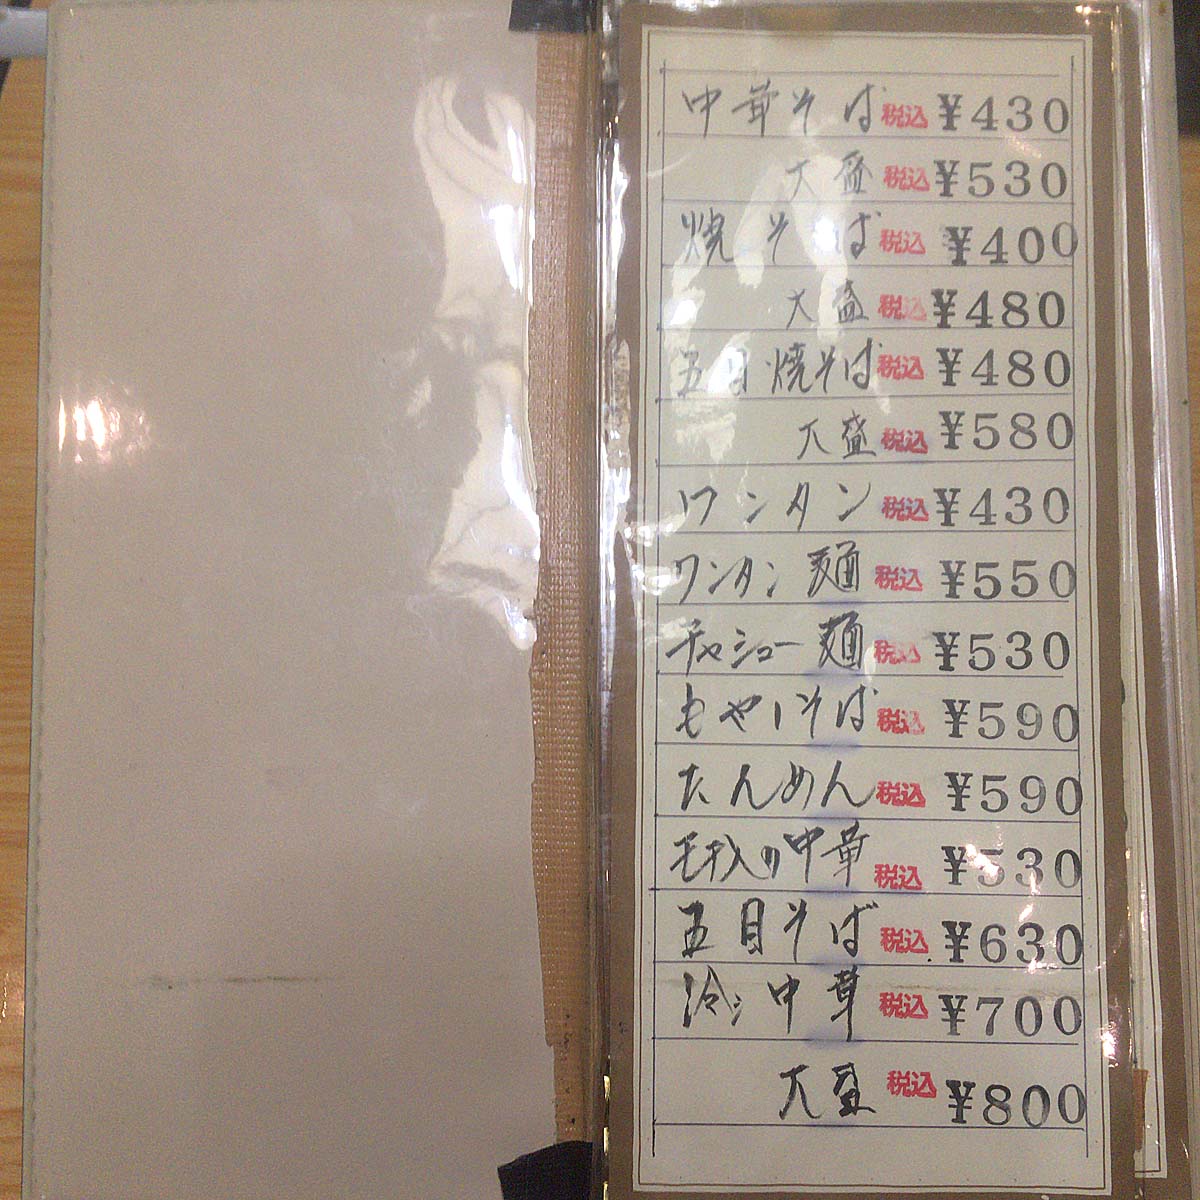 中華そば 税込 ¥430
大盛 税込 ¥530
焼そば 税込 ¥400
大盛 税込 ¥480
五目焼そば 税込 ¥480
大盛 税込 ¥580
ワンタン 税込 ¥430
ワンタン麺 税込 ¥550
チャシュー麺 税込 ¥530
もやしそば 税込 ¥590
たんめん 税込 ¥590
モチ入り中華 税込 ¥530
五目そば 税込 ¥630
冷し中華 税込 ¥700
大盛 税込 ¥800